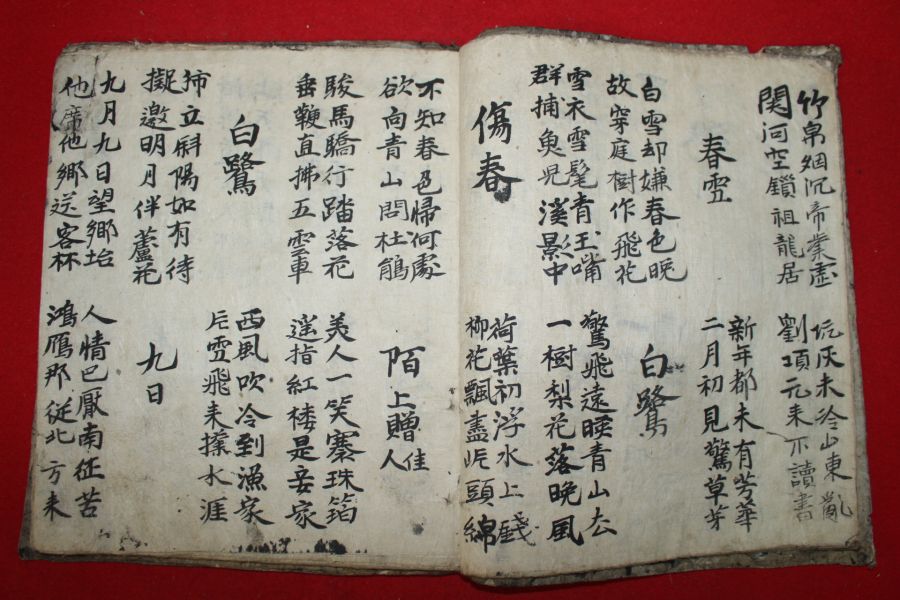 竹帛烟沉帝業虛
関河空鎖祖龍居
坑灰未冷山東亂
劉項元來不讀書
春雪
新年都未有芳華
二月初見驚草芽
白雪却嫌春色晚
故穿庭樹作飛花
白鷺
雪衣雪髦青玉嘴
群捕魚児溪影中
驚飛遠映青山去
一樹梨花落晚風
傷春
荷葉初浮水上錢
柳花飄盡岸頭綿
不知春色歸何處
欲向青山問杜鵑
陌上贈佳人
駿馬驕行踏落花
垂鞭直拂五雲車
美人一笑褰珠箔
遙指紅楼是妾家
白鷺
西風吹冷到漁家
片雪飛来撲水涯
立斜陽如有待
擬邀明月伴蘆花
九日
九月九日望鄉坮
他席他鄉送客杯
人情已厭南征苦
鴻鴈那從北方来